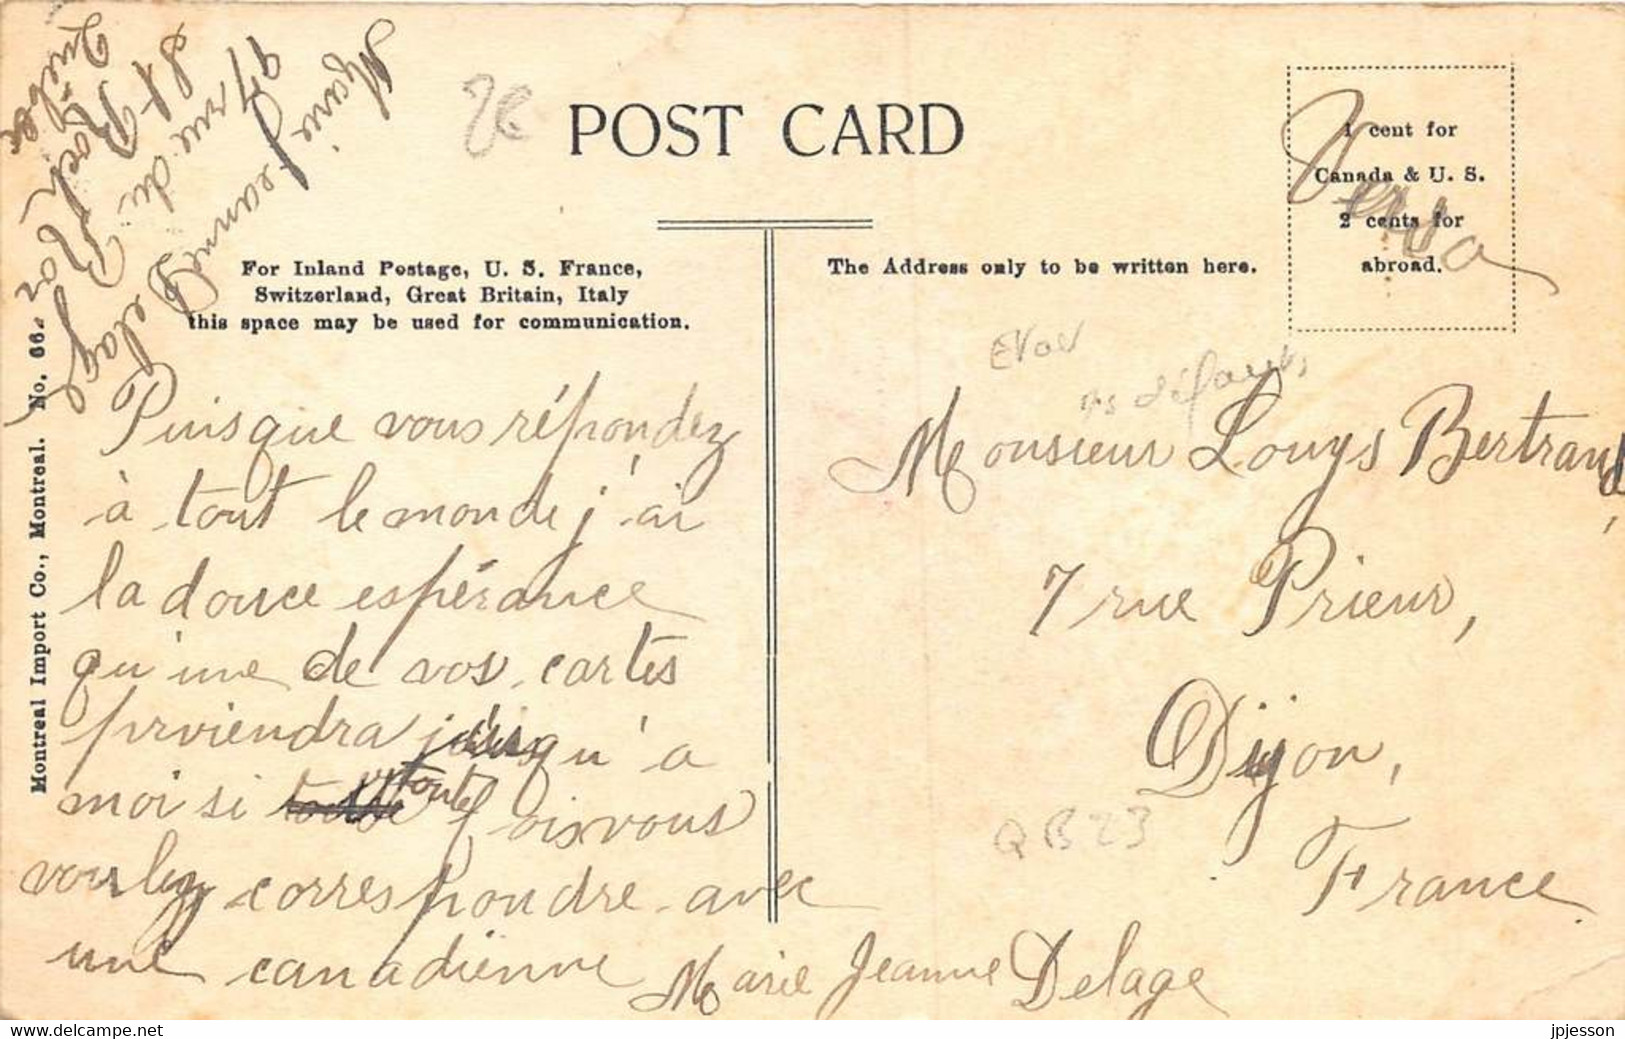 Marie Jeanne Delage
97 rue du
St Roch
Québec
POST CARD
1 cent for
Canada & U. S.
2 cents for
abroad.
Verso
For Inland Postage, U. S. France,
Switzerland, Great Britain, Italy
this space may be used for communication.
The Address only to be written here.
Montreal Import Co., Montreal. No. 66
Puisque vous répondez
à tout le monde j'ai
la douce espérance
qu'une de vos cartes
prviendra jusqu'a
moi si toutefois vous
voulez correspondre avec
une canadienne
Marie Jeanne Delage
Monsieur Louys Bertrand,
7 rue Prieur,
Dijon,
France.
QB23
www.delcampe.net
jpjesson